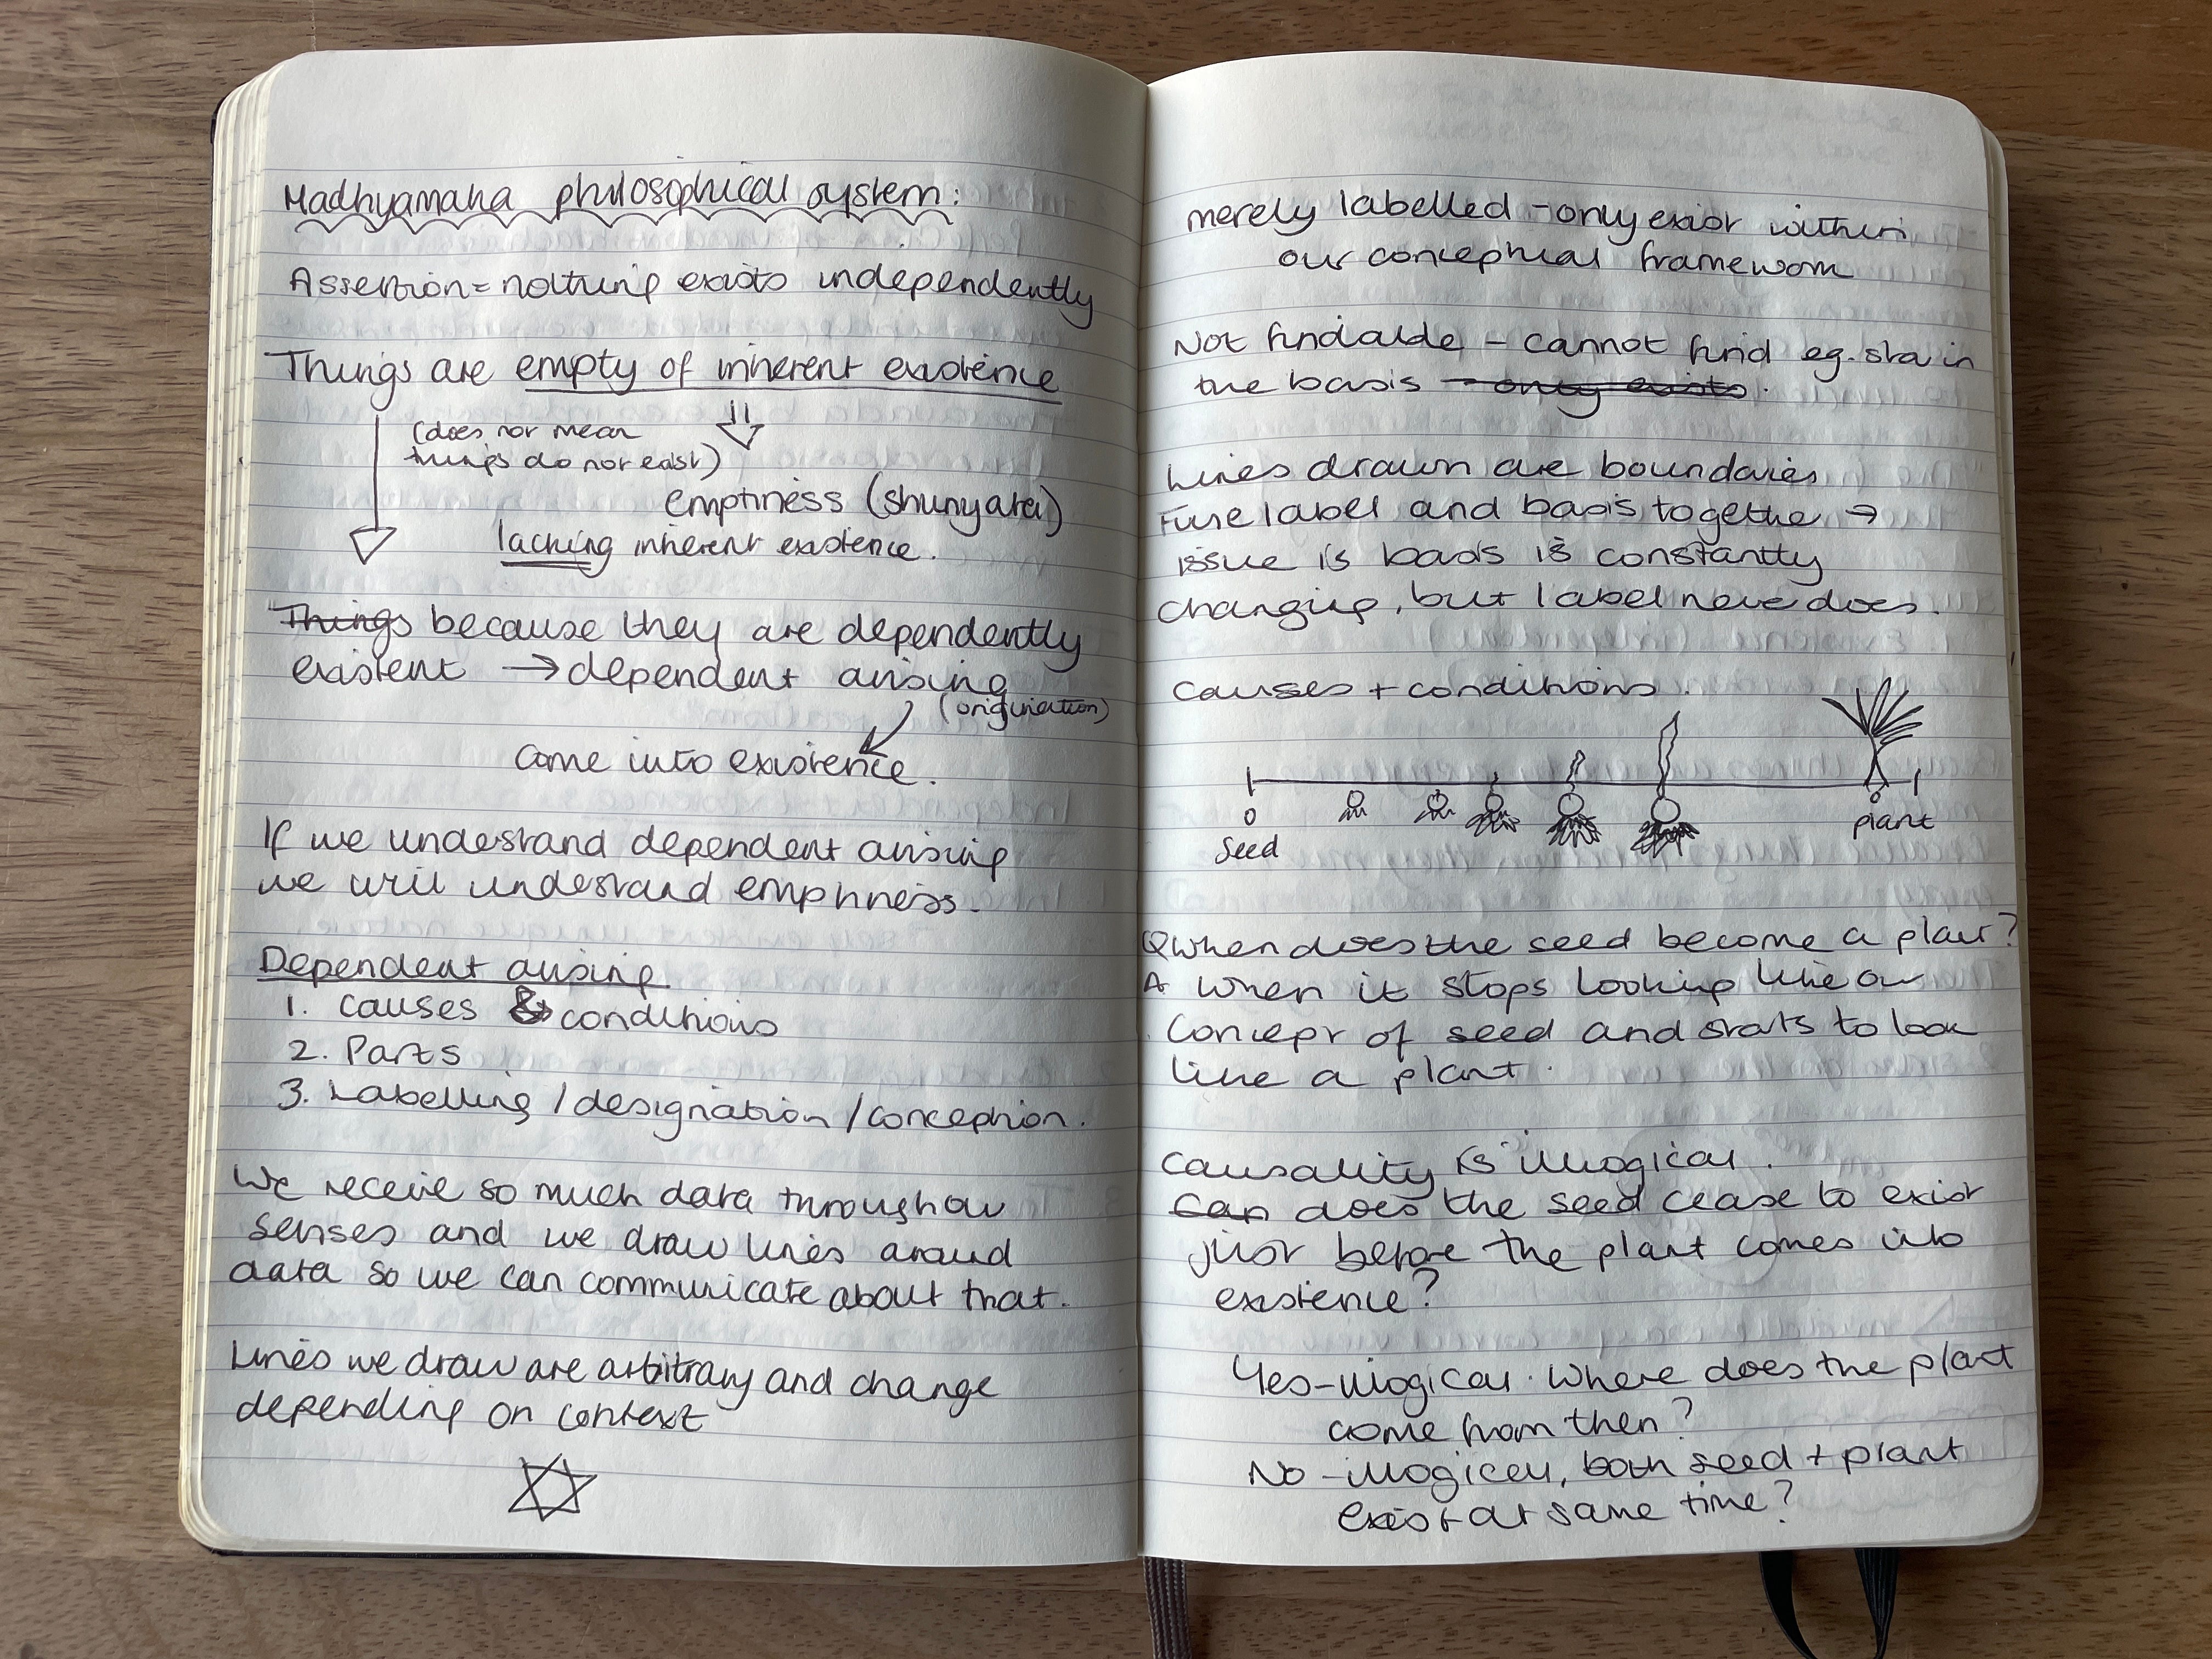 Madhyamaka philosophical system:
Assertion = nothing exists independently
Things are empty of inherent existence
(does not mean
things do not exist)
emptiness (shunyata)
lacking inherent existence.
Things because they are dependently
existent → dependent arising
(origination)
come into existence.
If we understand dependent arising
we will understand emptiness.
Dependent arising
1. causes & conditions
2. Parts
3. Labelling / designation / conception.
We receive so much data through our
senses and we draw lines around
data so we can communicate about that.
Lines we draw are arbitrary and change
depending on context
merely labelled - only exist within
our conceptual framework
Not findable - cannot find eg. star in
the basis - only exists.
Lines drawn are boundaries
Fuse label and basis together →
issue is basis is constantly
changing, but label never does.
causes + conditions.
seed
plant
Q When does the seed become a plant?
A When it stops looking like our
concept of seed and starts to look
like a plant.
Causality is illogical.
Can does the seed cease to exist
just before the plant comes into
existence?
Yes - illogical. Where does the plant
come from then?
No - illogical, both seed + plant
exist at same time?